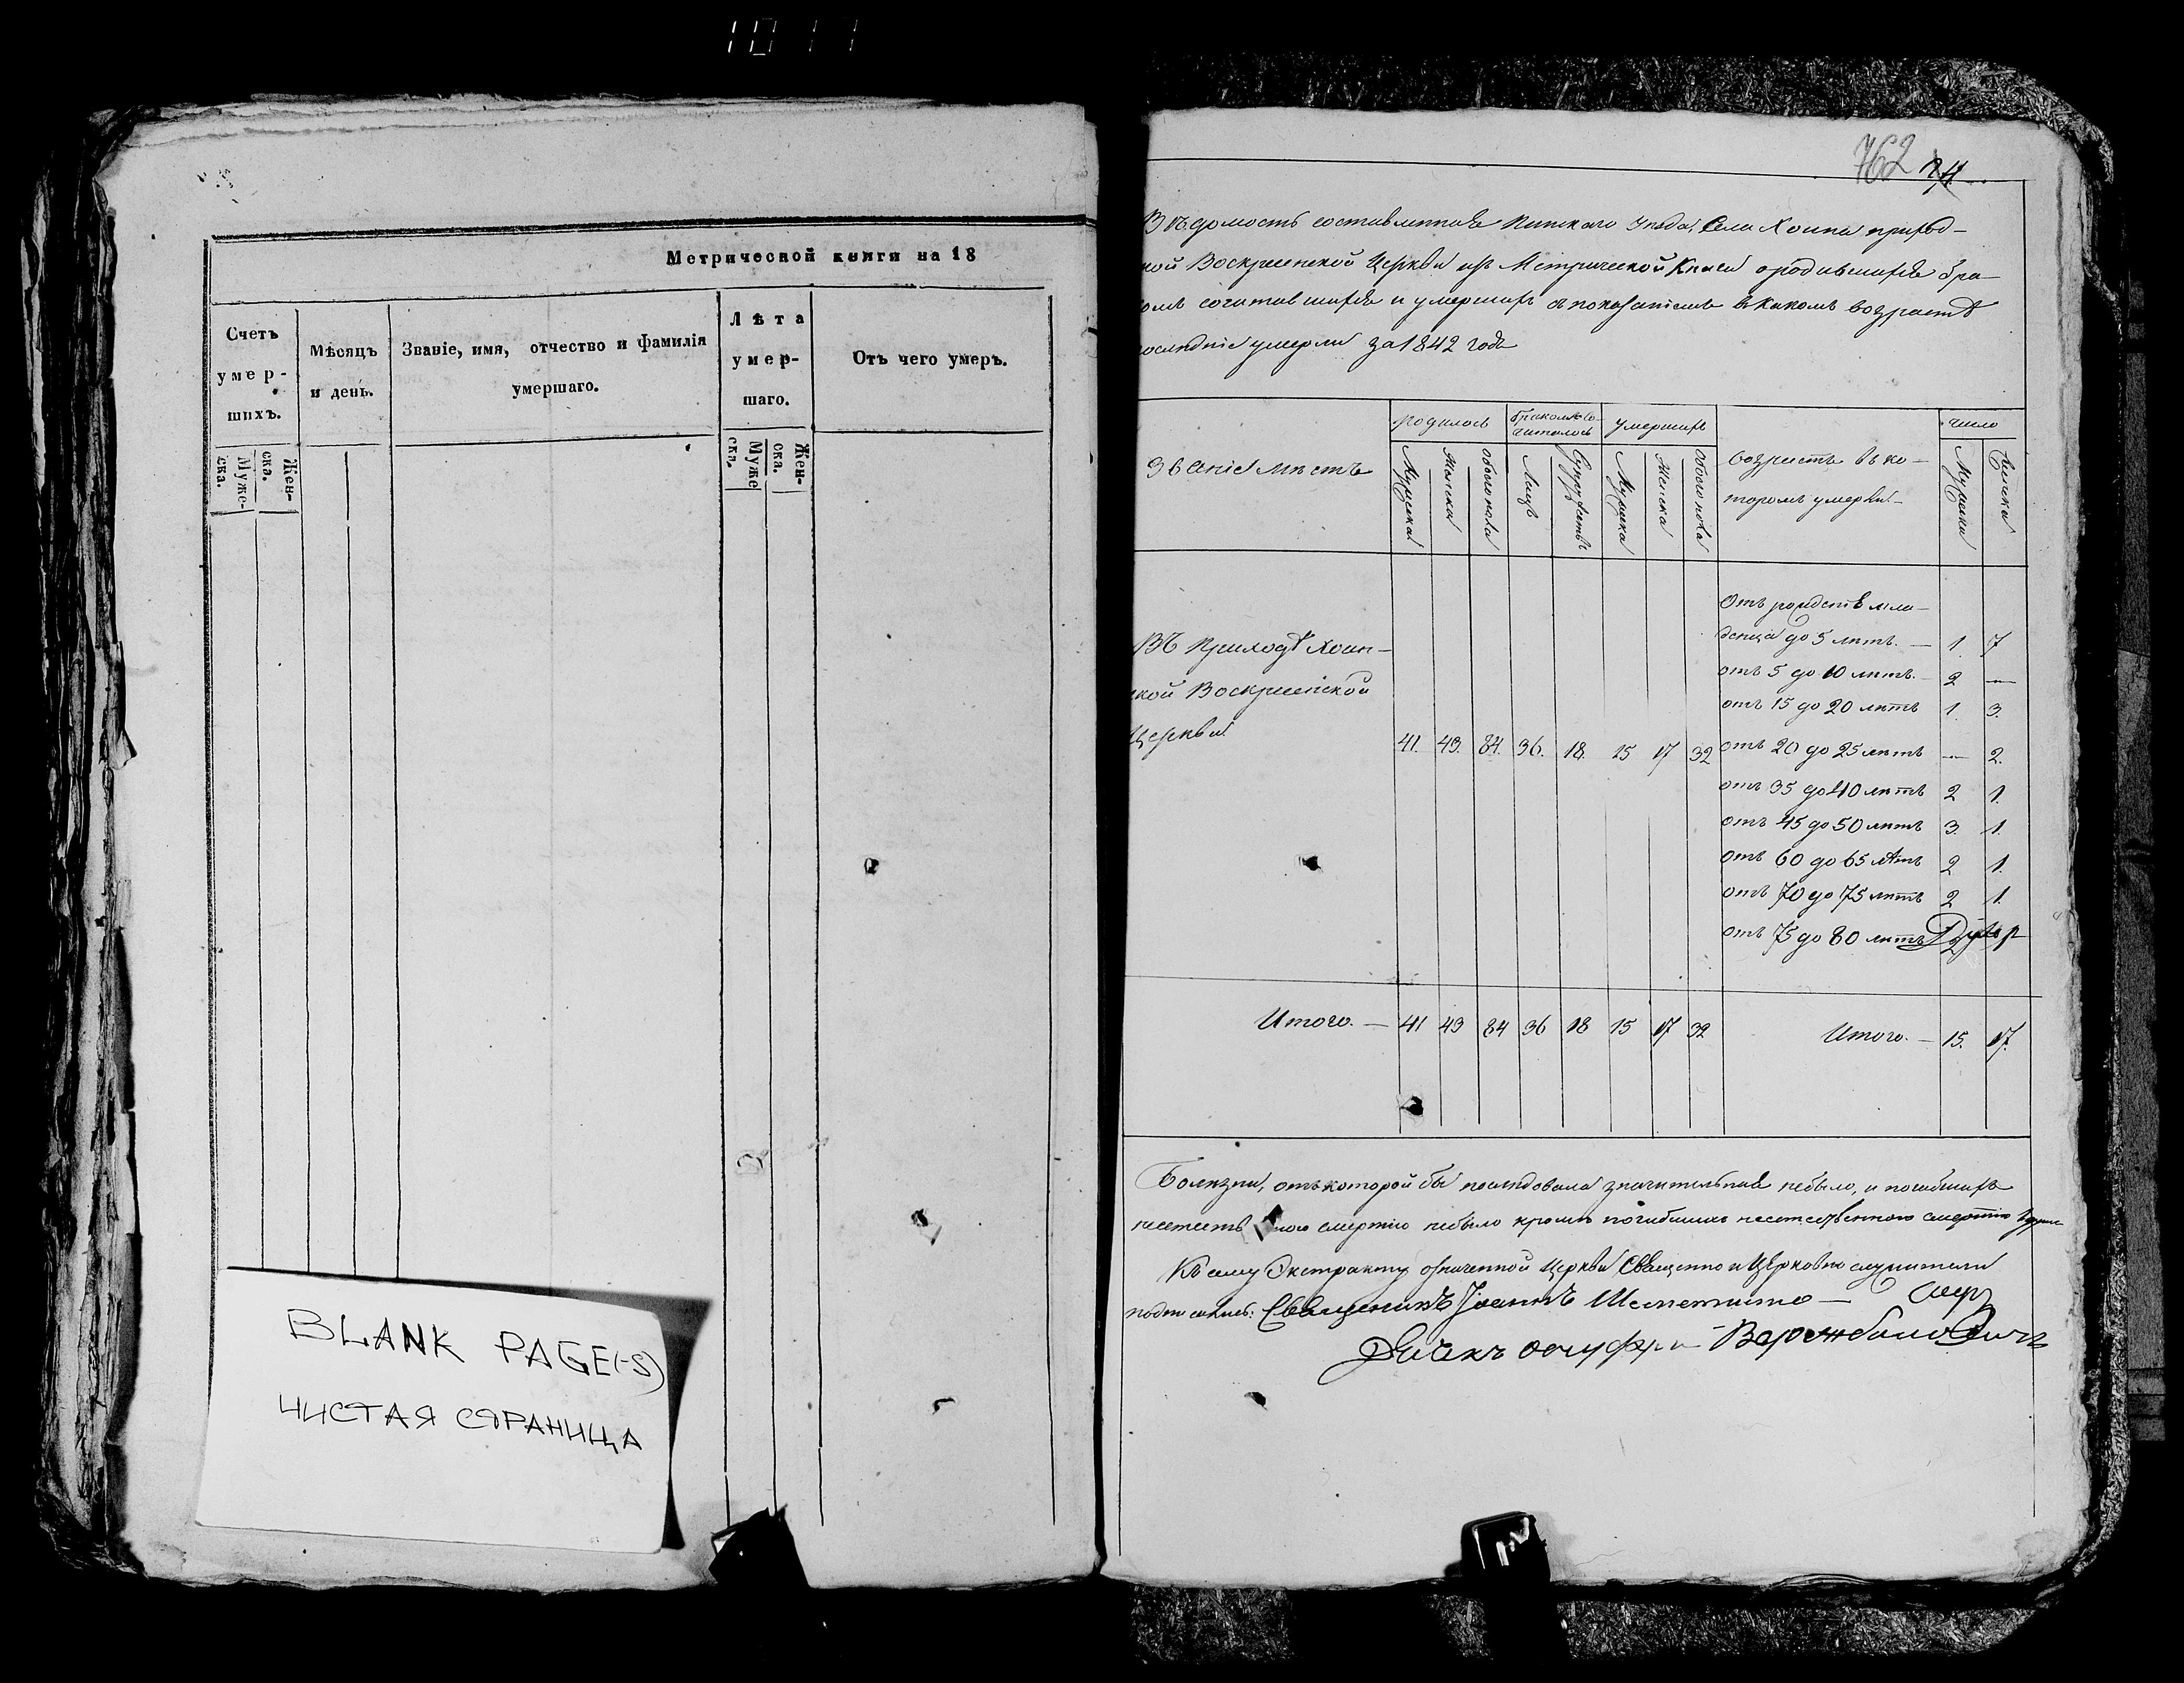 1011
Метрической книги на 18
Счетъ умер- шихъ.
Мѣсяцъ и день.
Званіе, имя, отчество и фамилія умершаго.
Лѣта умер- шаго.
Отъ чего умеръ.
Муже- ска.
Жен- ска.
Муже ска.
Жен- ска.
BLANK PAGE(-S)
ЧИСТАЯ СТРАНИЦА
762
Вѣдомость составленная Пинскаго Уѣзда, Села Хоина приход-
ной Воскресенской Церкви изъ Метрической Книги о родившихся бра
омъ сочитавшихся и умершихъ съ показаніемъ въ какомъ возрастѣ
послѣдніе умерли за 1842 годъ
Званіе мѣстъ
родилось
бракомъ со- читалось
умершихъ
возрастъ въ ко- торомъ умерли
число
Мужска
Женска
обоего пола
Лицъ
Супружествъ
Мужска
Женска
Обоего пола
Мужска
Женска
Отъ рождетв мла-
денца до 5 лѣтъ. — 1. 7
отъ 5 до 10 лѣтъ. 2 —
отъ 15 до 20 лѣтъ 1. 3.
Въ Приходѣ Хоин-
ской Воскресенской
Церкви
41. 43. 84. 36. 18. 15 17 32
отъ 20 до 25 лѣтъ — 2.
отъ 35 до 40 лѣтъ 2 1.
отъ 45 до 50 лѣтъ 3. 1.
отъ 60 до 65 лѣтъ 2 1.
отъ 70 до 75 лѣтъ 2 1.
отъ 75 до 80 лѣтъ 2
Итого. — 41 43 84 36 18 15 17 32
Итого. — 15. 17.
Болѣзни, отъ которой бы послѣдовала значительная небыло, и погибшихъ
неестеств ною смертію небыло кромѣ погибшихъ неестественною смертію
Къ сему Экстракту означенной Церкви Священно и Церковно служители
подписались: Священникъ Іоаннъ Шеметилло —
Дьячкъ Онуфри Вержбаловичъ